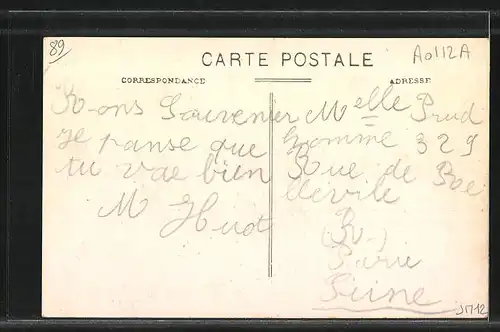 89
CARTE POSTALE
A0112A
CORRESPONDANCE
ADRESSE
Bons Souvenir
je panse que
tu vae bien
M Hudt
Melle Prud
homme 329
Rue de Be
lleville
(R-)
Parie
Seine
J1712